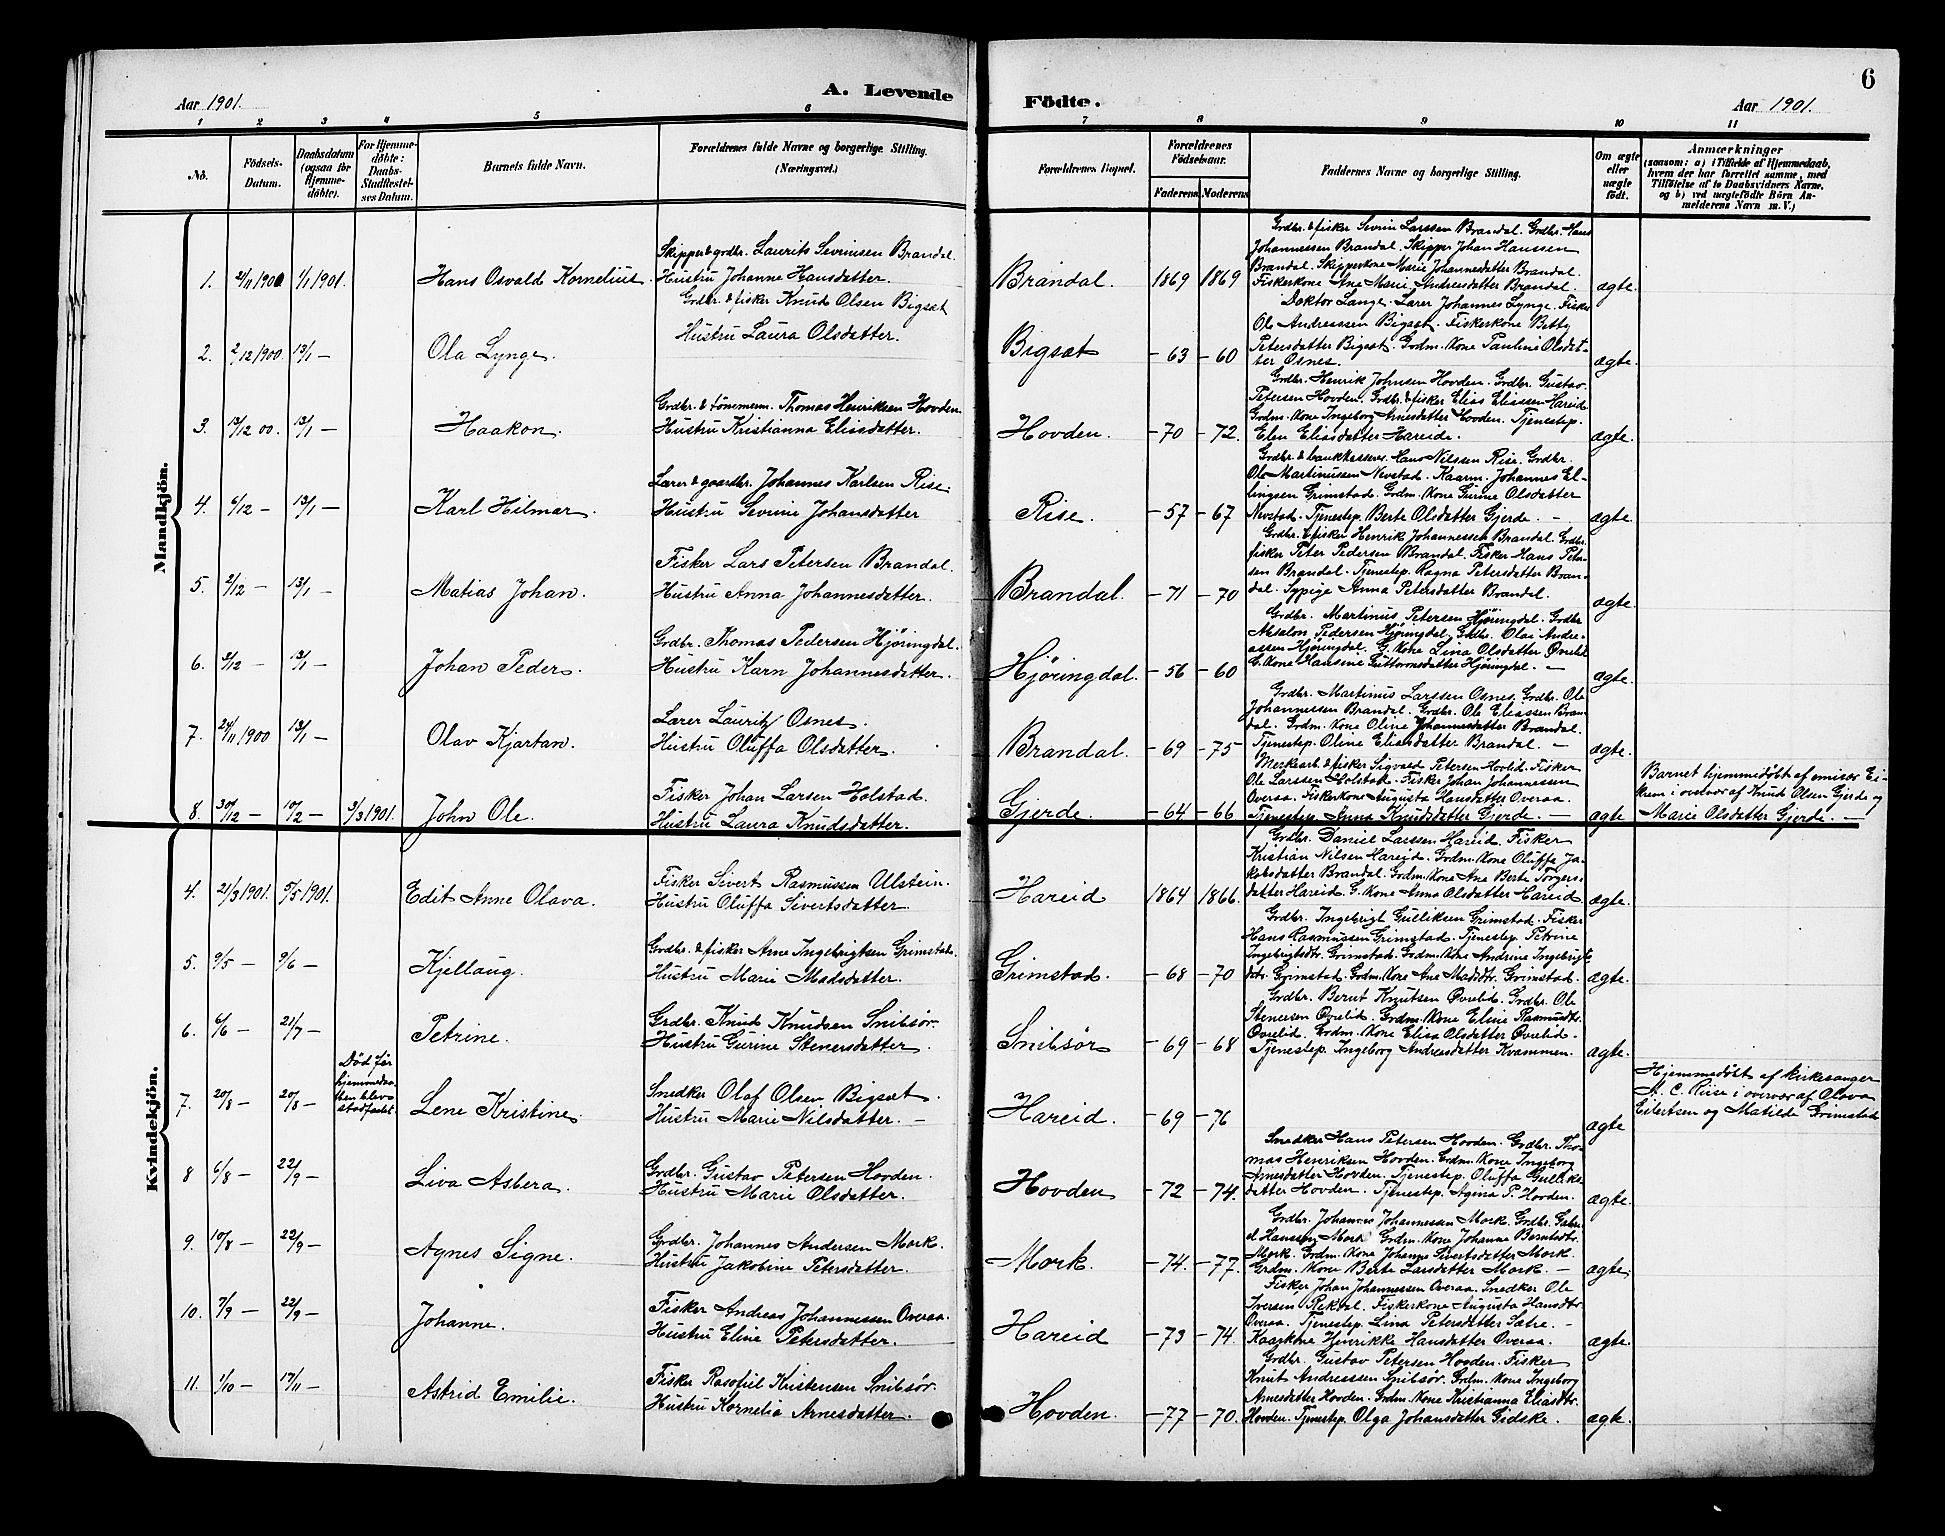 6
Aar 1901.
A. Levende Födte.
Aar 1901.
1 2 3 4 5 6 7 8 9 10 11
No.
Födsels-Datum.
Daabsdatum (ogsaa for Hjemmedöbte).
For Hjemmedöbte: Daabs-Stadfæstelses Datum.
Barnets fulde Navn.
Forældrenes fulde Navne og borgerlige Stilling. (Næringsvei.)
Forældrenes Bopæl.
Forældrenes Födselsaar.
Faderens Moderens
Faddernes Navne og borgerlige Stilling.
Om ægte eller uægte födt.
Anmærkninger
(saasom: a) i Tilfælde af Hjemmedaab, hvem der har forrettet samme, med Tilföielse af to Daabsvidners Navne, og b) ved uægtefödte Börn Anmelderens Navn m. V.)
Mandkjön.
1. 21/11 1900 1/1 1901. Hans Osvald Kornelius
Skipper & grdbr. Laurits Severinsen Brandal.
Hustru Johanne Hansdatter.
Brandal. 1869 1869
Grdbr. & fisker Severin Larssen Brandal. Grdbr. Hans
Johannessen Brandal. Skipper Johan Hanssen
Brandal. Skipperkone Marie Johannesdatter Brandal.
Fiskerkone Ane Marie Andreasdatter Brandal.
ægte.
2. 2/12 1900. 13/1 — Ola Lynge.
Grdbr. & fisker Knud Olsen Bigsæt
Hustru Laura Olsdatter.
Bigsæt — 63 — 60
Doktor Lange. Lærer Johannes Lynge. Fisker
Ole Andreassen Bigsæt. Fiskerkone Betty
Petersdatter Bigsæt. Grdm. Kone Pauline Olsdatter
Osnes.
ægte.
3. 13/12 00. 13/1 — Haakon.
Grdbr. & tönnem. Thomas Henriksen Hovden.
Hustru Kristianna Eliasdatter.
Hovden. — 70 — 72.
Grdbr. Henrik Johnsen Hovden. Grdbr. Gustav
Petersen Hovden. Grdbr. & fisker Elias Eliassen Hareid.
Grdm. Kone Ingeborg Arnesdatter Hovden. Tjenestep.
Elen Eliasdatter Hareide.
ægte.
4. 6/12 — 13/1 — Karl Hilmar.
Lærer & gaardbr. Johannes Karlsen Rise.
Hustru Severine Johansdatter
Rise. — 57 — 67
Grdbr. & bankkasserer Hans Nilssen Rise. Grdbr.
Ole Martinussen Nevstad. Kaarm. Johannes El-
lingsen Grimstad. Grdm. Kone Gurine Olsdatter
Nevstad. Tjenestep. Berte Olsdatter Gjerde. —
ægte.
5. 2/12 — 13/1 — Matias Johan.
Fisker Lars Petersen Brandal.
Hustru Anna Johannesdatter.
Brandal. — 71 — 70
Grdbr. & fisker Henrik Johannessen Brandal. Grdbr.
fisker Peter Pedersen Brandal. Fisker Hans Peter-
sen Brandal. Tjenestep. Ragna Petersdatter Bran-
dal. Sypige Anna Petersdatter Brandal.
ægte.
6. 3/12 — 13/1 — Johan Peder.
Grdbr. Thomas Pedersen Hjöringdal.
Hustru Karn Johannesdatter.
Hjöringdal. — 56 — 60
Grdbr. Martinus Petersen Hjöringdal. Grdbr.
Absalon Pedersen Hjöringdal. Grdbr. Olai Andre-
assen Hjöringdal. G. Kone Lina Olsdatter Överlid
G. Kone Hansine Guttormsdatter Hjöringdal. —
ægte.
7. 24/11 1900 13/1 — Olav Kjartan.
Lærer Lauritz Osnes.
Hustru Oluffa Olsdatter.
Brandal. — 69 — 75
Grdbr. Martinus Larssen Osnes. Grdbr. Ole
Johannessen Brandal. Grdbr. Ole Eliassen Bran-
dal. Grdm. Kone Oline Johannesdatter Brandal.
Tjenestep. Oline Eliasdatter Brandal. —
ægte.
8. 30/12 — 10/2 — 3/3 1901. John Ole.
Fisker Johan Larsen Holstad.
Hustru Laura Knudsdatter.
Gjerde. — 64 — 66
Merkearb. & fisker Sigvald Petersen Hovlid. Fisker
Ole Larssen Holstad. Fisker Johan Johannessen
Overaa. Fiskerkone Augusta Hansdatter Overaa.
Tjenestep. Anna Knudsdatter Gjerde. —
ægte
Barnet hjemmedöbt af emisær Ei-
krem i overvær af Knud Olsen Gjerde og
Marie Olsdatter Gjerde. —
Kvindekjön.
4. 21/3 1901. 5/5 1901. Edit Anne Olava.
Fisker Sivert Rasmussen Ulstein.
Hustru Oluffa Sivertsdatter
Hareid 1864 1866.
Grdbr. Daniel Larssen Hareid. Fisker
Kristian Nilsen Hareid. Grdm. Kone Oluffa Ja-
kobsdatter Brandal. Grdm. Kone Ane Berte Torgers-
datter Hareid. G. Kone Anna Olsdatter Hareid
ægte.
5. 9/5 — 9/6 — Kjellaug.
Grdbr. & fisker Arne Ingebrigtsen Grimstad.
Hustru Marie Madsdatter.
Grimstad. — 68 — 70
Grdbr. Ingebrigt Gulliksen Grimstad. Fisker
Hans Rasmussen Grimstad. Tjenestep. Petrine
Ingebrigtsdtr. Grimstad. Grdm. Kone Andrine Ingebrigts-
dtr. Grimstad. Grdm. Kone Ane Madsdtr. Grimstad.
ægte.
6. 6/6 — 21/7 — Petrine.
Grdbr. Knud Knudsen Snibsör.
Hustru Gurine Stenersdatter.
Snibsör — 69 — 68
Grdbr. Bernt Knutsen Överlid. Grdbr. Ole
Stenersen Överlid. Grdm. Kone Eline Rasmusdtr.
Överlid. Grdm. Kone Elisa Olsdatter Överlid.
Tjenestep. Ingeborg Andreasdatter Kvammen.
ægte.
7. 20/8 — 20/8 — Död før hjemmedaaben blev stadfæstet.
Lene Kristine.
Snedker Olaf Olsen Bigsæt.
Hustru Marie Nilsdatter. —
Hareid. — 69 — 76
ægte
Hjemmedöbt af kirkesanger
A. C. Riise i overvær af Olava
Eilertsen og Matilde Grimstad
8 6/8 — 22/9 — Liva Asbera.
Grdbr. Gustav Petersen Hovden.
Hustru Marie Olsdatter.
Hovden — 72 — 74.
Snedker Hans Petersen Hovden. Grdbr. Tho-
mas Henriksen Hovden. Grdm. Kone Ingeborg
Arnesdatter Hovden. Tjenestep. Oluffa Gulliks-
datter Hovden. Tjenestep. Agina P. Hovden.
ægte.
9. 10/8 — 22/9 — Agnes Signe.
Grdbr. Johannes Andersen Mork.
Hustru Jakobine Petersdatter.
Mork. — 74. — 77.
Grdbr. Johannes Johannessen Mork. Grdbr. Gabri-
el Hanssen Mork. Grdm. Kone Johanne Berntsdtr.
Mork. Grdm. Kone Johanne Sivertsdatter Mork.
Grdm. Kone Berte Larsdatter Mork. —
ægte.
10. 7/9 — 22/9 — Johanne.
Fisker Andreas Johannessen Overaa.
Hustru Eline Petersdatter.
Hareid — 73 — 74.
Fisker Johan Johannessen Overaa. Snedker Ole
Iversen Rekdal. Fiskerkone Augusta Hansdtr.
Overaa. Tjenestep. Lina Petersdatter Sætre. —
Kaarkone Henrikke Hansdatter Overaa.
ægte.
11. 1/10 — 17/11 — Astrid Emilie.
Fisker Rasofiel Kristensen Snibsör.
Hustru Kornelia Arnesdatter.
Hovden. — 77 — 70.
Grdbr. Gustav Petersen Hovden. Fisker
Knut Andreassen Snibsör. Grdm. Kone Ingeborg
Arnesdatter Hovden. Grdm. Kone Kristianna Eliasdtr.
Hovden. Tjenestep. Olga Johansdatter Gidske.
ægte.